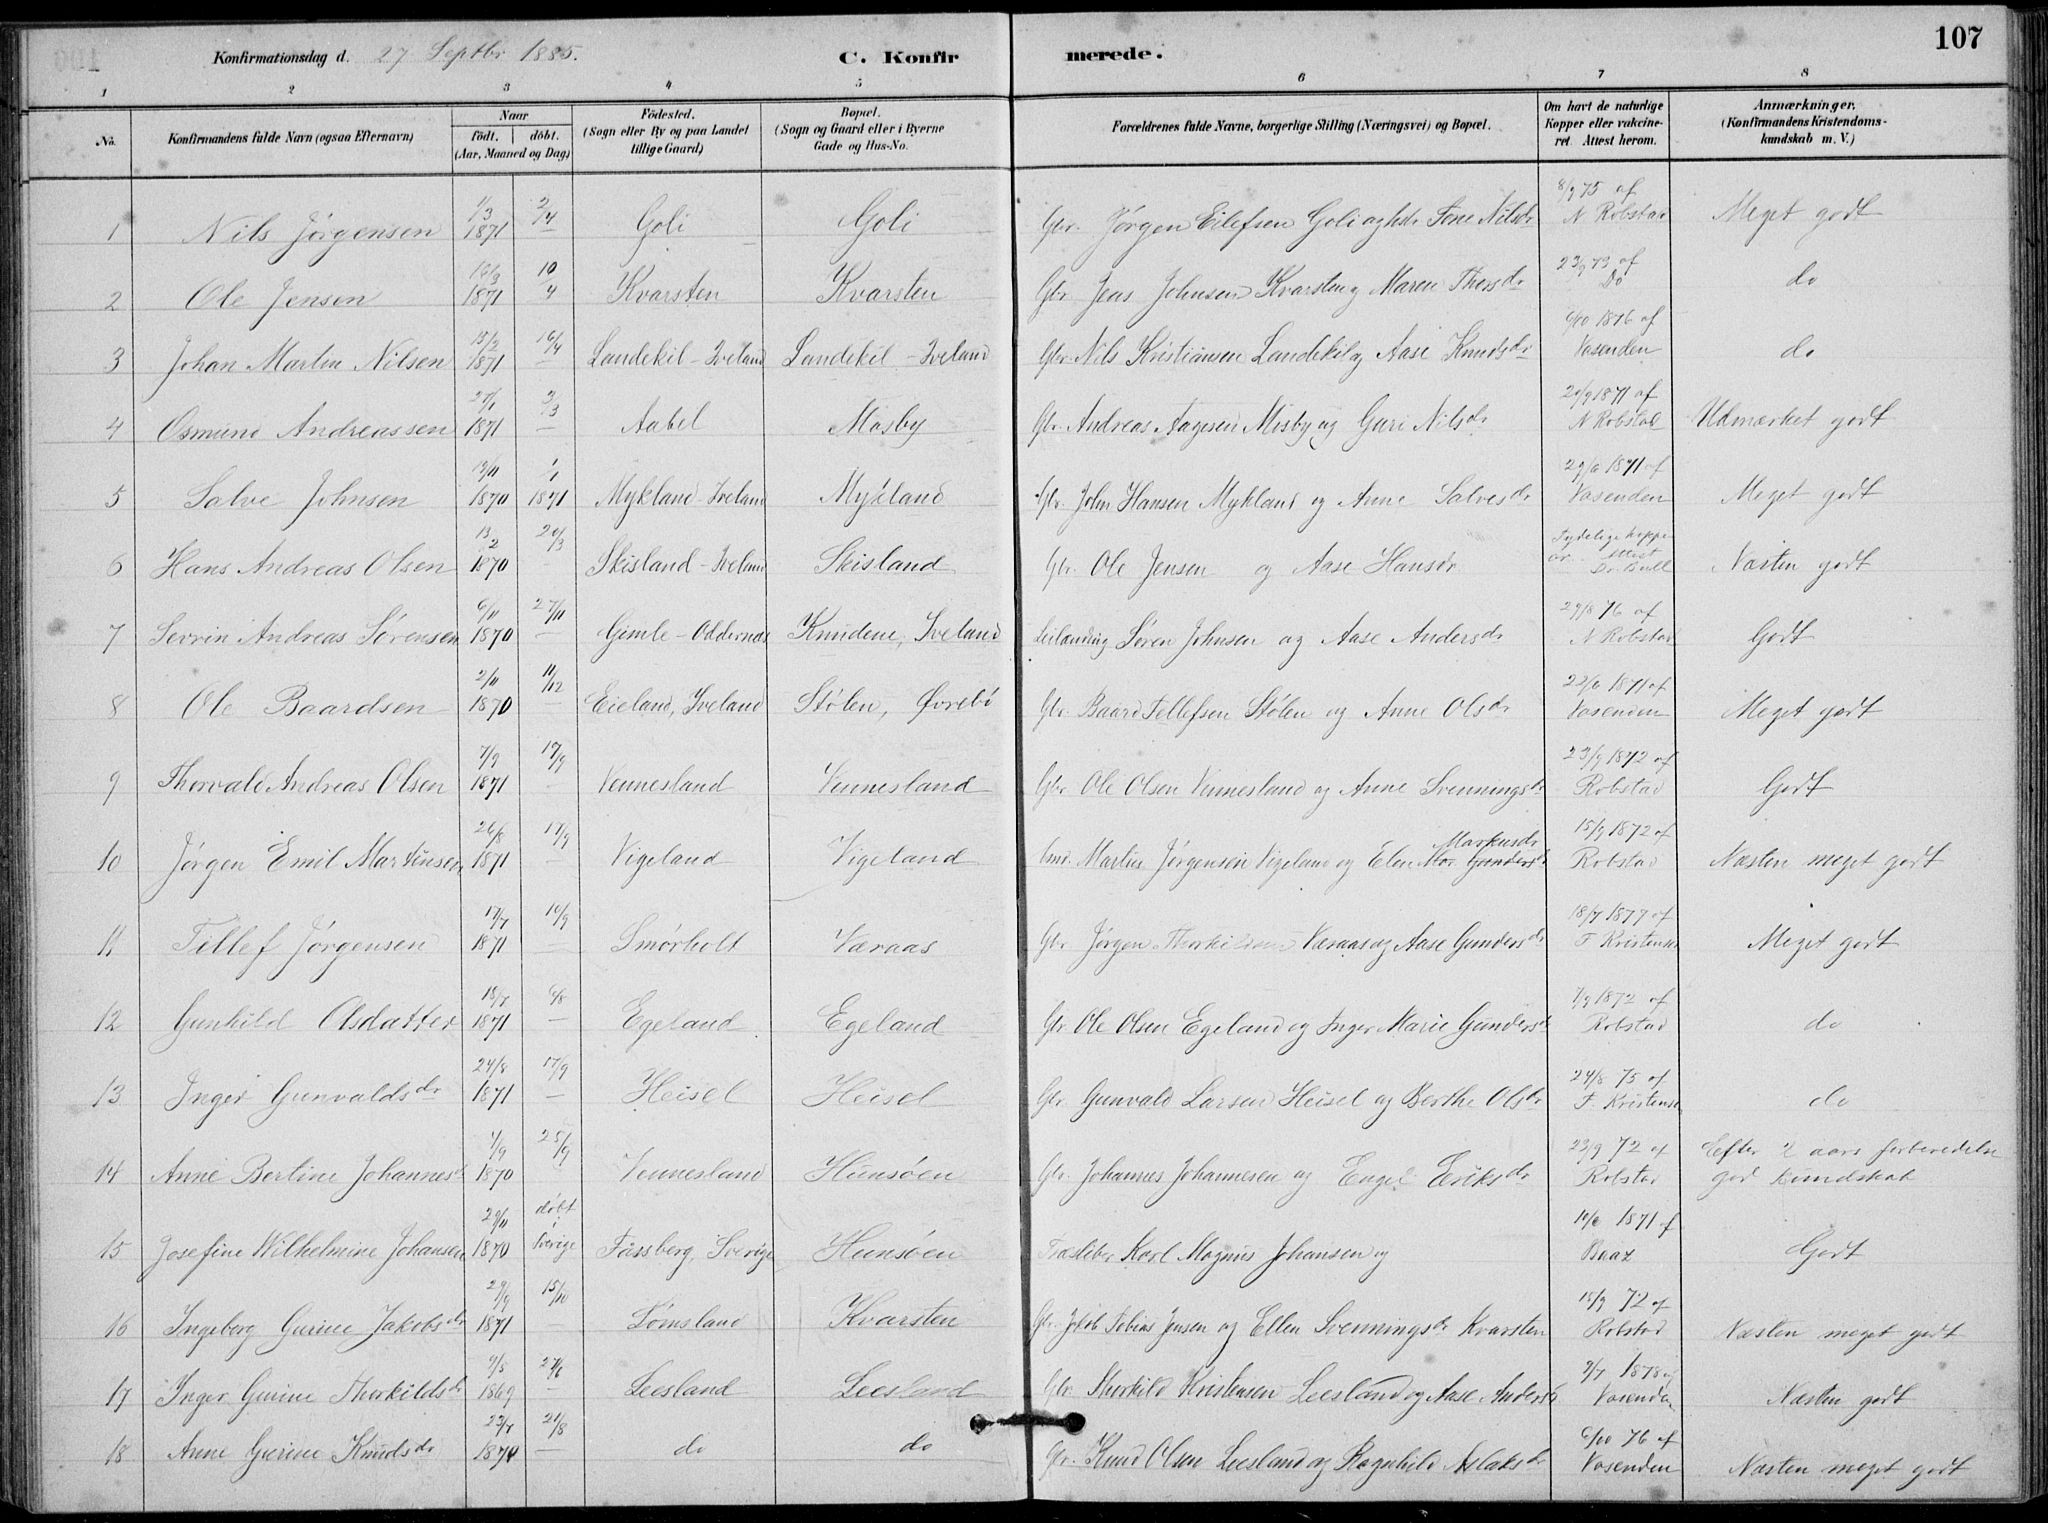 107
Konfirmationsdag d. 27 Septbr 1885. C. Konfirmerede.
1 2 3 4 5 6 7 8
No. Konfirmandens fulde Navn (ogsaa Efternavn) Naar født. døbt. (Aar, Maaned og Dag) Fødested. (Sogn eller By og paa Landet tillige Gaard) Bopæl. (Sogn og Gaard eller i Byerne Gade og Hus-No. Forældrenes fulde Navne, borgerlige Stilling (Næringsvei) og Bopæl. Om havt de naturlige Kopper eller vakcineret. Attest herom. Anmærkninger. (Konfirmandens Kristendomskundskab m. V.)
1 Nils Jörgensen 1/3 1871 2/4 – Goli Goli Gbr. Jörgen Eilefsen Goli og hds Tone Nilsdr 8/9 75 af N Robstad Meget godt
2 Ole Jensen 16/3 1871 10/4 Kvarsten Kvarsten Gbr. Jens Johnsen Kvarsten og Maren Thorsdr 23/9 73 af Do do
3 Johan Martin Nilsen 15/2 1871 16/4 – Landekil - Iveland Landekil - Iveland Gbr. Nils Kristiansen Landekil og Aase Knudsdr 6/10 1876 af Vasenden do
4 Osmund Andreassen 1871 – Aabel Mosby Gbr Andreas Aagesen Mosby og Guri Nilsdr 1871 af N Robstad Udmærket godt
5 Salve Johnsen 1870 1/1 1871 Mykland - Iveland Mykland Gbr. John Hansen Mykland og Anne Salvesdr 29/6 1871 af Vasenden Meget godt
6 Hans Andreas Olsen 13/2 1870 20/3 – Skisland - Iveland Skisland Gbr. Ole Jensen og Aase Hansdr Tydelige koppear. Attest Dr. Bull Næsten godt
7 Sevrin Andreas Sörensen 6/11 1870 27/11 – Gimle - Oddernes Knudene, Iveland Leilænding Sören Johnsen og Aase Andersdr 29/8 76 af N Robstad Godt
8 Ole Baardsen 2/11 1870 11/12 – Eieland, Iveland Stölen, Övrebö Gbr Baard Tellefsen Stölen og Anne Olsdr 22/6 1871 af Vasenden Meget godt
9 Thorvald Andreas Olsen 7/9 1871 17/9 – Vennesland Vennesland Gbr Ole Olsen Vennesland og Anne Svenningsdr 23/9 1872 af Robstad Godt
10 Jörgen Emil Martinsen 26/8 1871 17/9 – Vigeland Vigeland Martin Jörgensen Vigeland og Elen Markusdr 15/9 1872 af Robstad Næsten meget godt
11 Tellef Jörgensen 17/7 1871 10/9 – Smörholt Væraas Gbr Jörgen Thorkildsen Væraas og Aase Gundersdr 18/7 1877 af T Kristensen Meget godt
12 Gunhild Olsdatter 18/7 1871 6/8 – Egeland Egeland Gbr. Ole Olsen Egeland og Inger Marie Gundersdr 7/9 1872 af Robstad do
13 Inger Gunvaldsdr 24/8 1871 17/9 – Heisel Heisel Gbr. Gunvald Larsen Heisel og Berthe Olsdr 24/8 75 af T. Kristensen do
14 Anne Bertine Johannesdr 1/9 1870 25/9 Vennesland Hunsöen Gbr. Johannes Johannesen og Engel Eriksdr 23/9 72 af Robstad Efter 2 aars forberedelse god kundskab
15 Josefine Wilhelmine Johansen 29/11 1870 döbt i Sverige Fassberg, Sverige Hunsöen Karl Magnus Johansen og 10/6 1871 af Baaz Godt
16 Ingeborg Gurine Jakobsdr 29/9 1871 15/10 – Lömsland Kvarsten Gbr. Jakob Tobias Jensen og Ellen Svenningsdr Kvarsten 15/9 72 af Robstad Næsten meget godt
17 Inger Gurine Thorkildsdr 9/5 1869 27/6 – Leesland Leesland Gbr. Thorkild Kristensen Leesland og Aase Andersdr 2/7 1878 af Vasenden Næsten godt
18 Anne Gurine Knudsdr 23/7 1870 21/8 – do do Gbr. Knud Olsen Leesland og Ragnhild Aslaksdr 6/10 76 af Vasenden Næsten meget godt